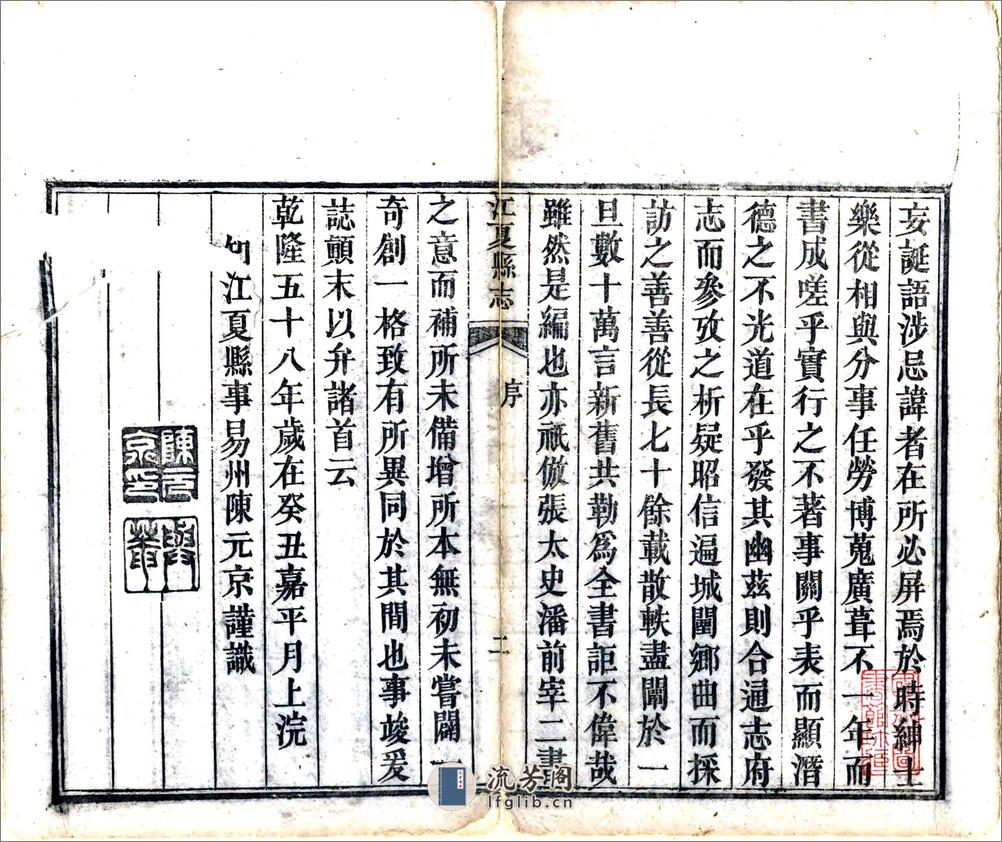 妄誕語涉忌諱者在所必屏焉於時紳士
樂從相與分事任勞博蒐廣葺不一年而
書成嗟乎實行之不著事關乎表而顯潛
德之不光道在乎發其幽茲則合通志府
志而參攷之析疑昭信遍城闉鄉曲而採
訪之善善從長七十餘載散軼盡闡於一
旦數十萬言新舊共勒為全書詎不偉哉
雖然是編也亦祇倣張太史潘前宰二書
江夏縣志
序
二
之意而補所未備增所本無初未嘗闢一
奇創一格致有所異同於其間也事竣爰
誌顛末以弁諸首云
乾隆五十八年歲在癸丑嘉平月上浣
江夏縣事易州陳元京謹識
陳元京印
流芳閣
lfglib.cn